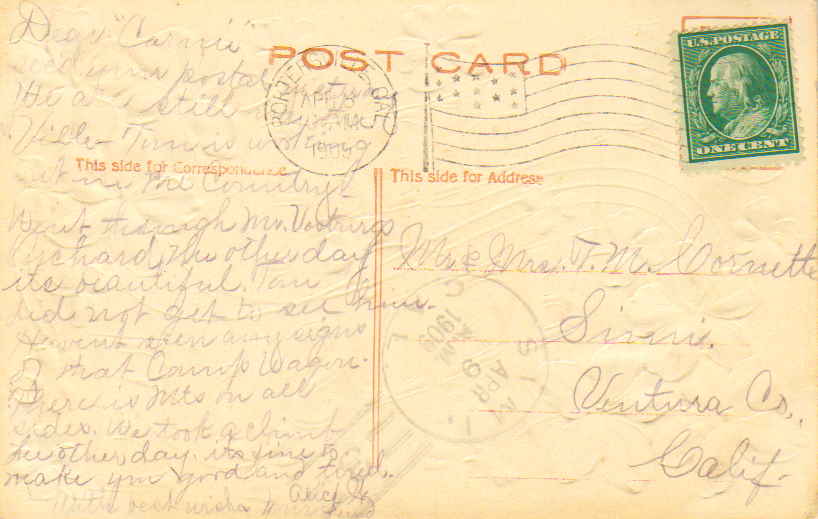 POST CARD
U.S. POSTAGE
ONE CENT
This side for Correspondence
This side for Address
Dear "Carnie"
your postal
We are still
Ville Tom is working
out in the Country.
Went through Mr.
the other day
its beautiful. Tom
did not get to see him.
Havent seen any signs
of that Camp Wagon.
There is Mts on all
sides. We took a climb
the other day, its fine to
make you good and tired.
With best wishes
Alice
Mr & Mrs. T. M. Cornette
Simi.
Ventura Co.,
Calif.
APR
1909
SIMI
APR
9
AM
1909